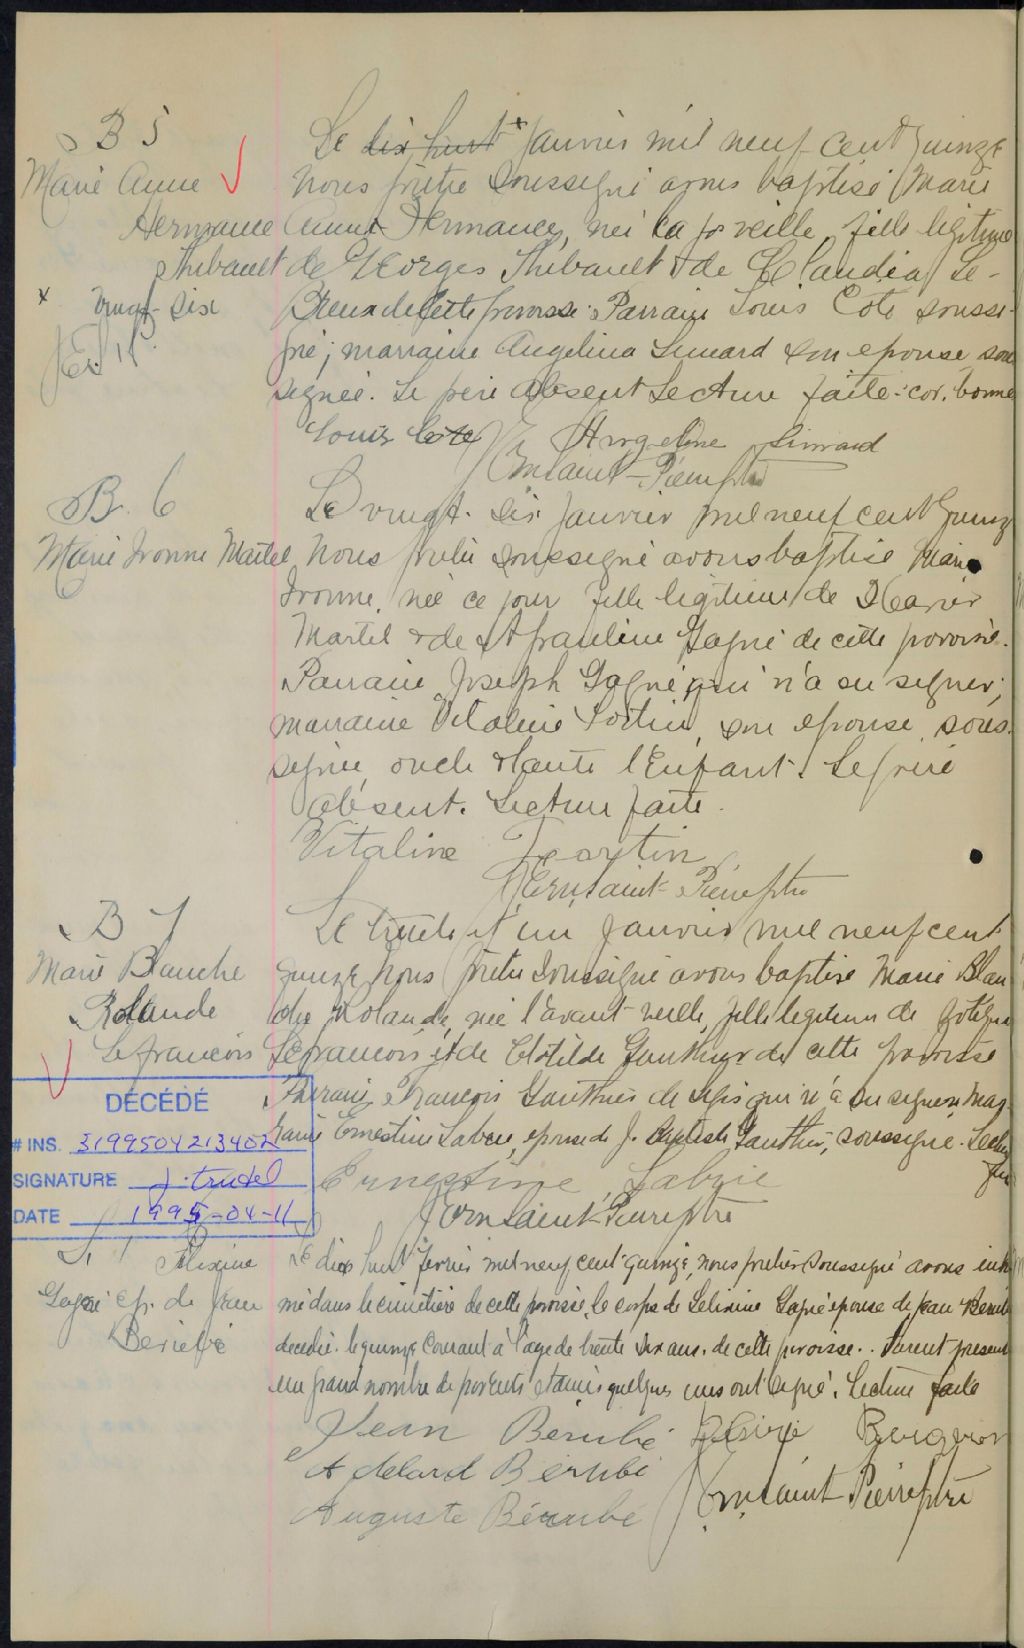 B 5
Marie Anne
Hermance
Thibault
x vingt-six
Le dix huit x Janvier mil neuf cent quinze
nous prêtre soussigné avons baptisé Marie
Anne Hermance, née la veille, fille légitime
de Georges Thibault & de Claudia Le-
de cette paroisse. Parrain Louis Coté soussi-
gné; marraine Angelina Simard son epouse, sous
signée. Le père absent Lecture faite.
Louis Coté Angeline Simard
Saint-Pierre ptre
B. 6
Marie Ivonne Martel
Le vingt-six Janvier mil neuf cent quinze
Nous prêtre soussigné avons baptisé Marie
Ivonne, née ce jour fille légitime de Xavier
Martel & de Gagné de cette paroisse.
Parrain Joseph Gagné qui n'a su signer;
marraine Vitaline Fortin, son epouse, sous-
signée, oncle & tante de l'Enfant. Le père
absent. Lecture faite.
Vitaline Fortin
Saint-Pierre ptre
B 7
Marie Blanche
Rolande
Lefrancois
Le trente et un Janvier mil neuf cent
quinze, nous prêtre soussigné avons baptisé Marie Blan
che Rolande, née l'avant-veille, fille legitime de
Lefrancois et de Clotilde Gauthier de cette paroisse
Parrain, Francois Gauthier de qui n'a su signer, mar
raine Ernestine Labrie, epouse de J. Baptiste Gauthier, soussigné. Lecture
Ernestine Labrie
Saint-Pierre ptre
DÉCÉDÉ
# INS. 3199504213402
SIGNATURE J. Trudel
DATE 1995-04-11
Gagné ep. de Jean
Bérubé
Le dix huit Fevrier mil neuf cent quinze, nous prêtre soussigné avons inhu
mé dans le cimetière de cette paroisse, le corps de Gagné épouse de Jean Bérubé
décédée le quinze courant à l'age de trente six ans. de cette paroisse. Furent présent
un grand nombre de parents et amis quelques uns ont signé. Lecture faite
Jean Bérubé Bergeron
Adelard Bérubé
Auguste Bérubé Saint Pierre ptre